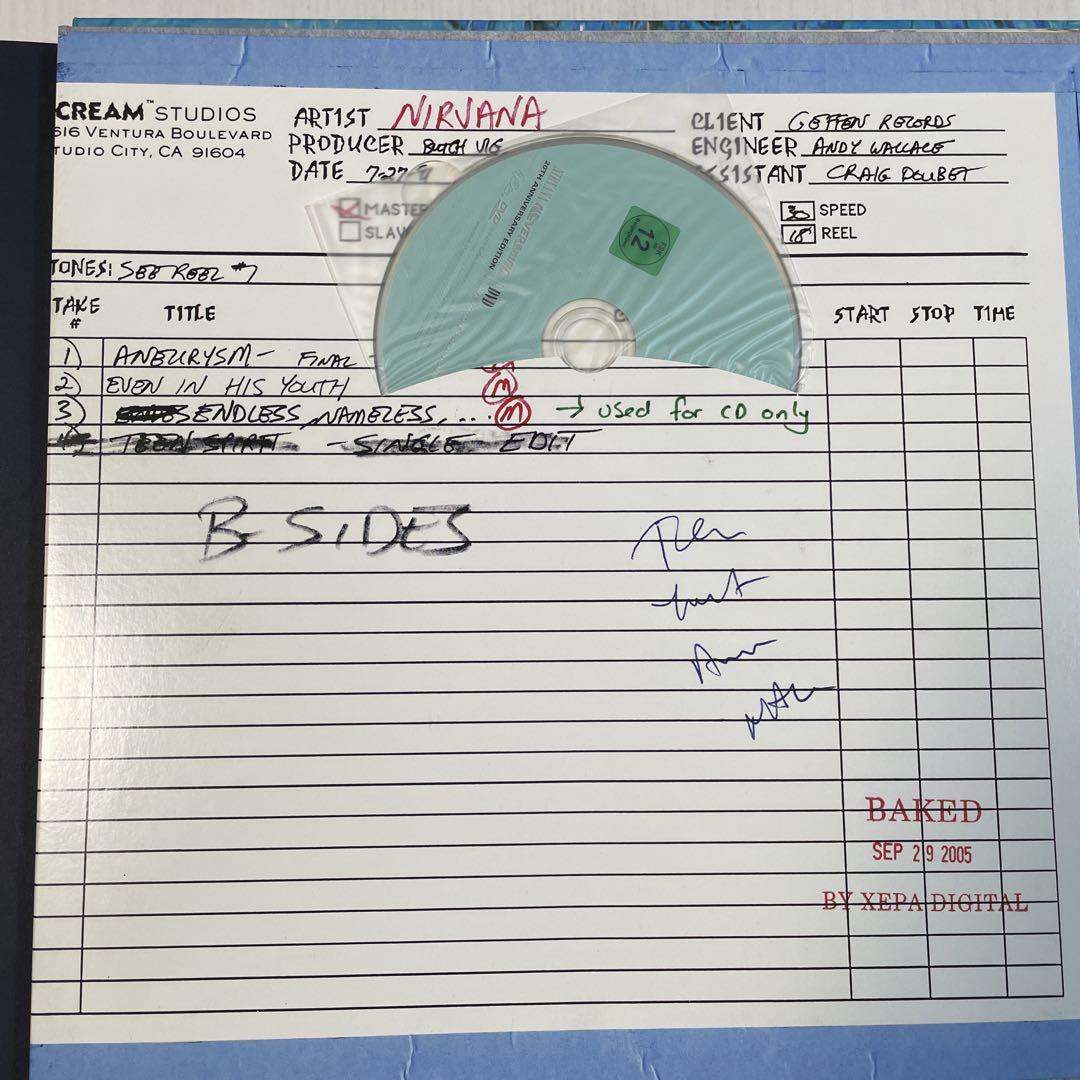 CREAM™ STUDIOS
616 VENTURA BOULEVARD
TUDIO CITY, CA 91604
ARTIST NIRVANA
PRODUCER BUTCH VIG
DATE 7-27
CLIENT GEFFEN RECORDS
ENGINEER ANDY WALLACE
SISTANT CRAIG DOUBET
MASTER
SLAV
30 SPEED
REEL
20TH ANNIVERSARY EDITION
NIRVANA NEVERMIND
DVD
FSK
12
TONES: SEE REEL #7
TAKE # TITLE START STOP TIME
1) ANEURYSM - FINAL
2) EVEN IN HIS YOUTH M
3) ENDLESS, NAMELESS, ... M → used for CD only
4) TEEN SPIRIT - SINGLE EDIT
B SIDES
BAKED
SEP 29 2005
BY XEPA DIGITAL